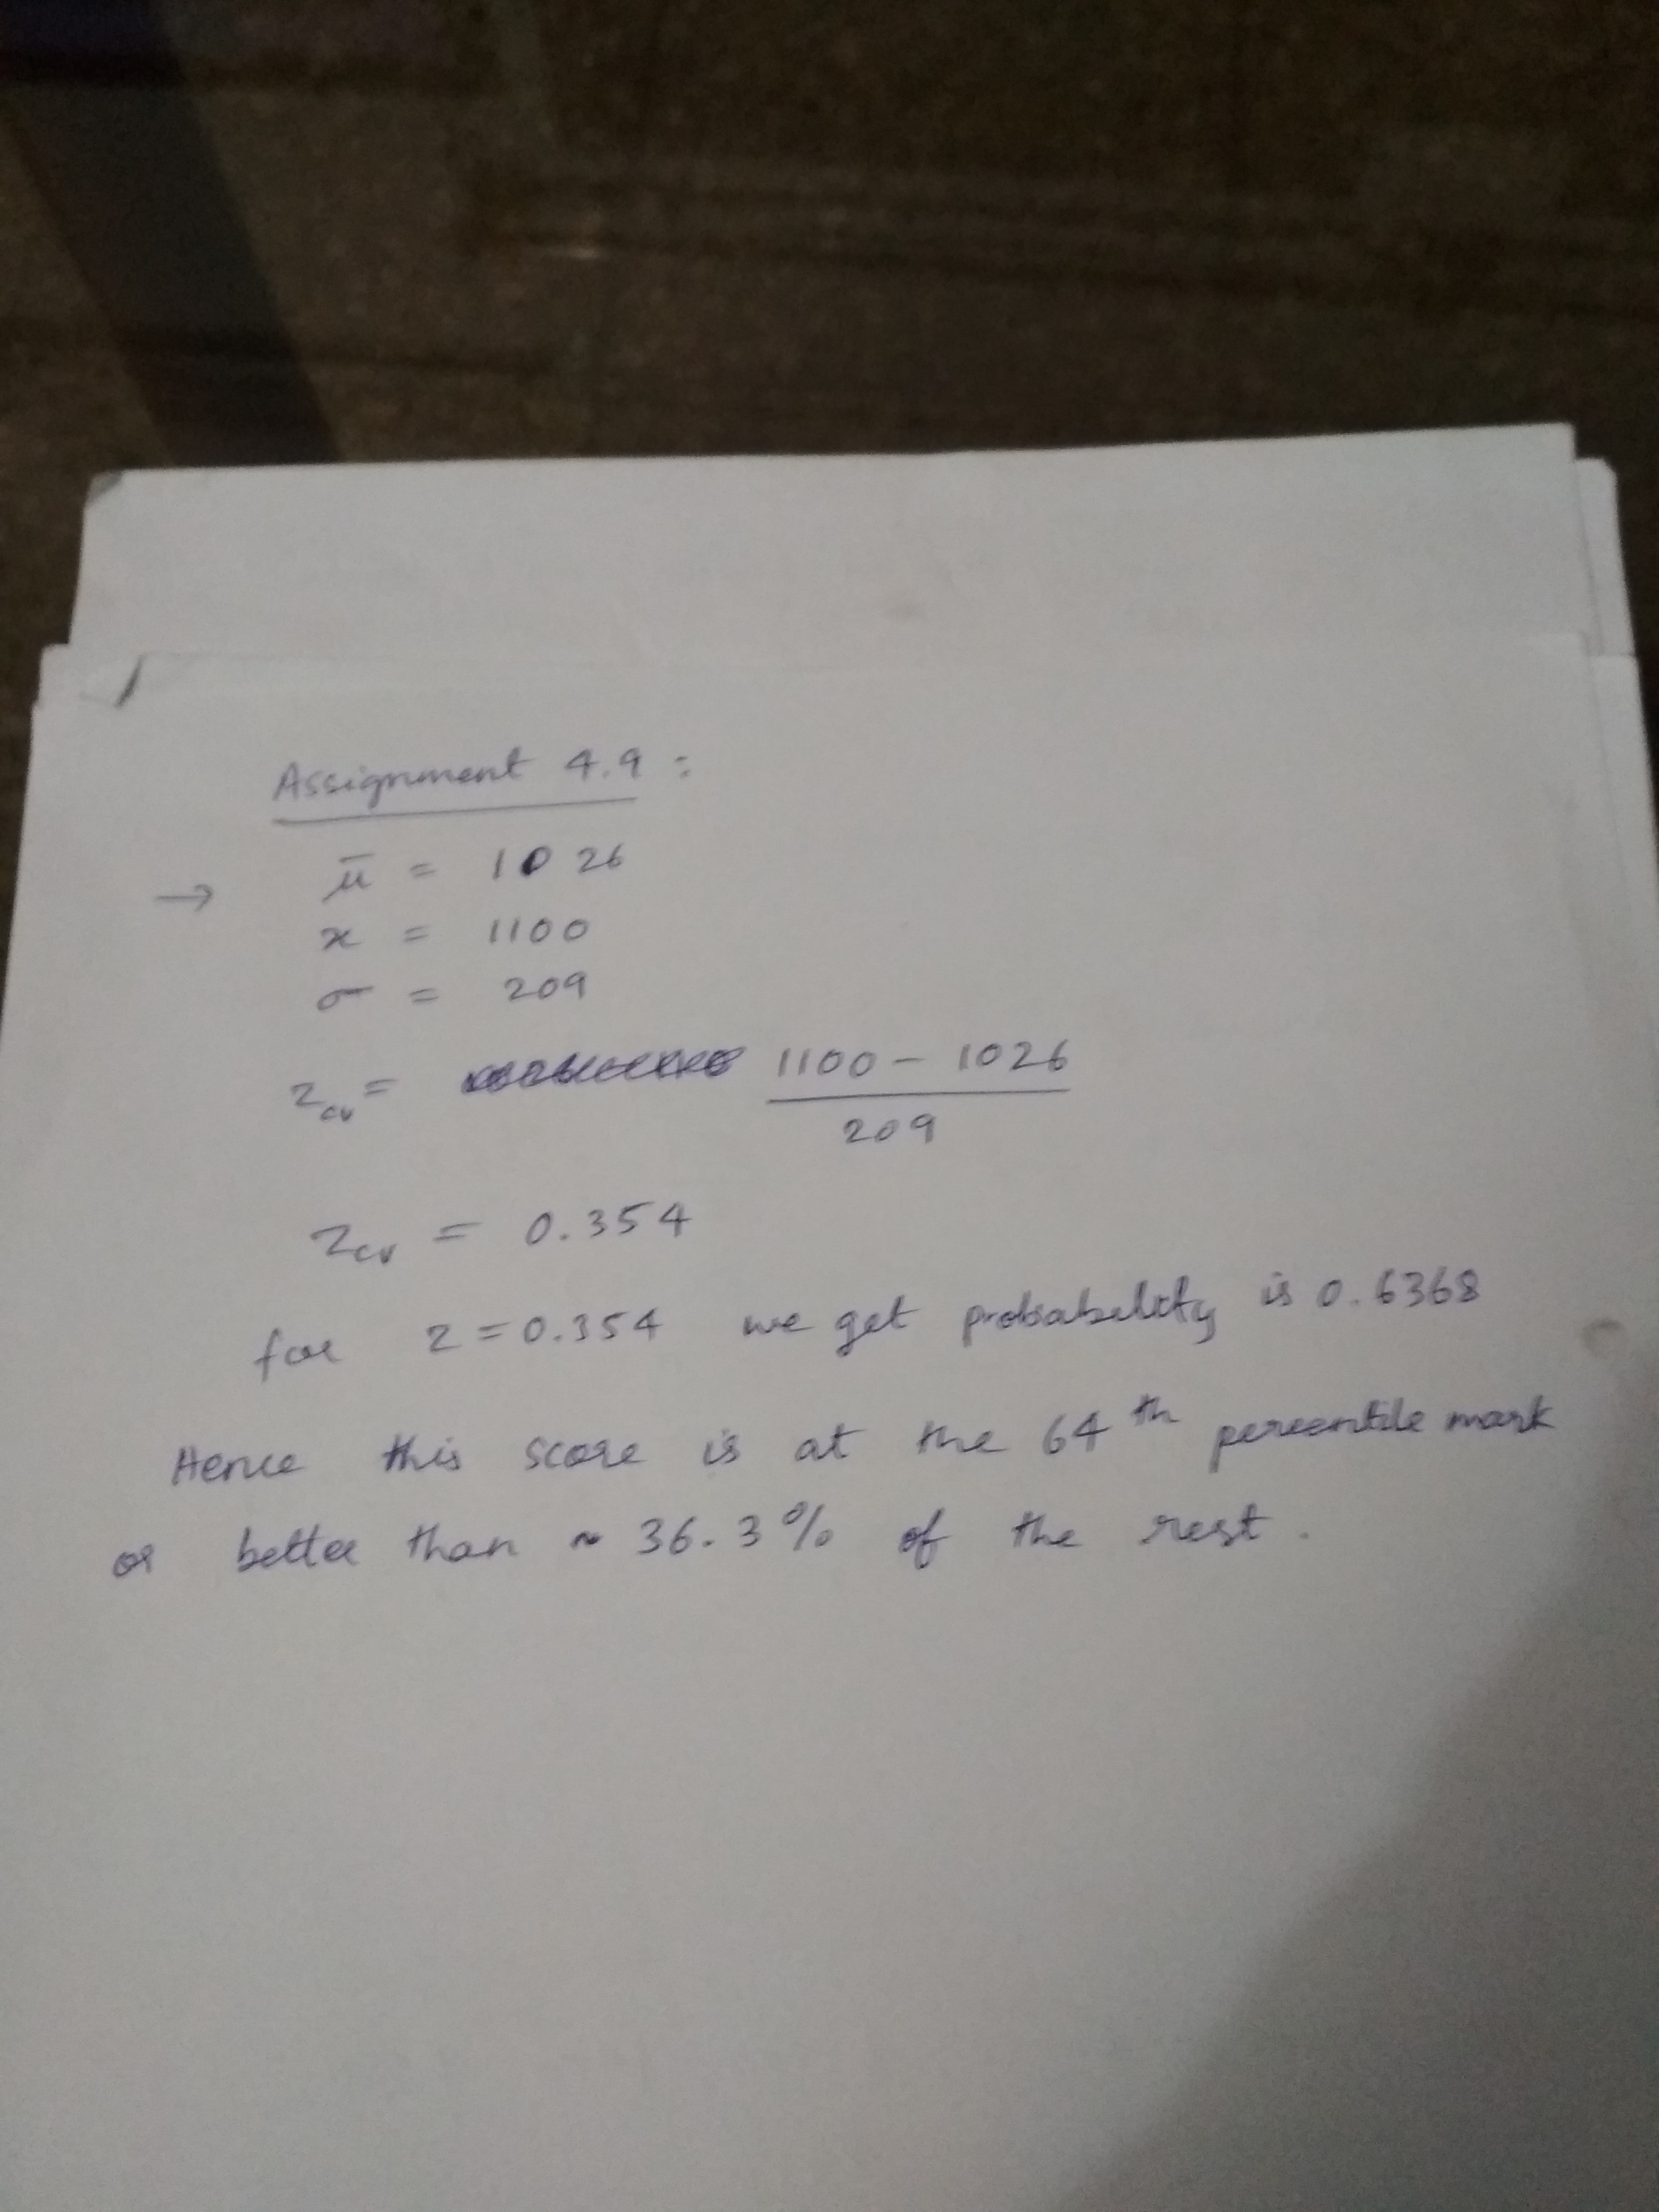 Assignment 4.9 :
→ μ̄ = 1026
x = 1100
σ = 209
Zcv = 1100 - 1026
209
Zcv = 0.354
for z = 0.354 we get probability is 0.6368
Hence this score is at the 64th percentile mark
or better than ~ 36.3% of the rest.